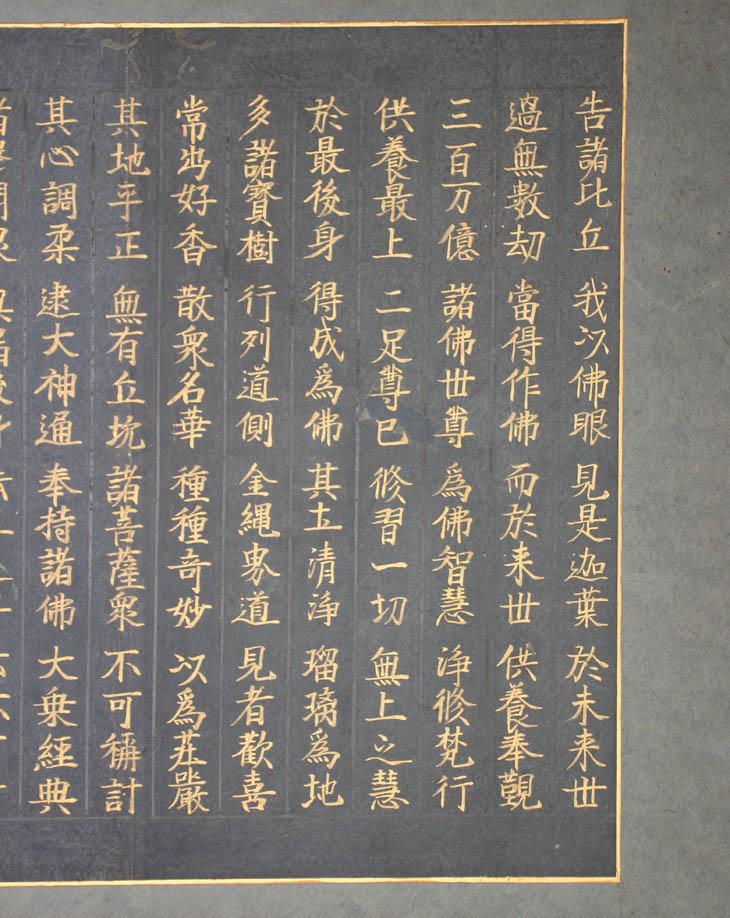 告諸比丘 我以佛眼 見是迦葉 於未来世
過無數劫 當得作佛 而於来世 供養奉覲
三百万億 諸佛世尊 為佛智慧 淨修梵行
供養最上 二足尊已 修習一切 無上之慧
於最後身 得成為佛 其土清淨 瑠璃為地
多諸寶樹 行列道側 金繩界道 見者歡喜
常出好香 散衆名華 種種奇妙 以為莊嚴
其地平正 無有丘坑 諸菩薩衆 不可稱計
其心調柔 逮大神通 奉持諸佛 大乗經典